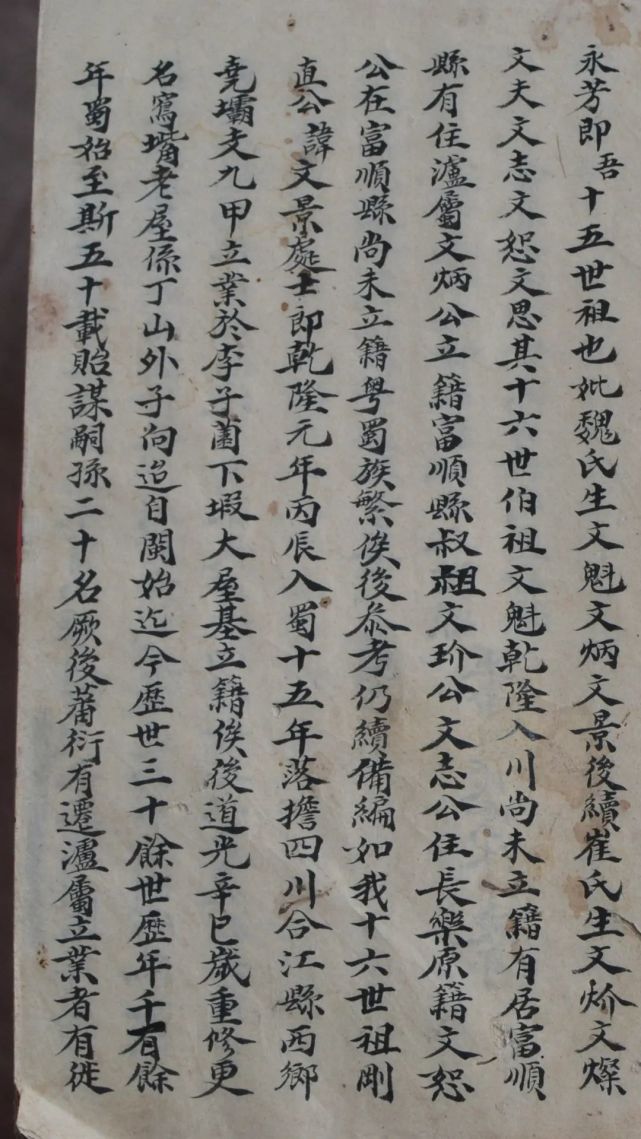 永芳即吾十五世祖也妣魏氏生文魁文炳文景後續崔氏生文炌文燦
文夫文志文恕文思其十六世伯祖文魁乾隆入川尚未立籍有居富順
縣有住瀘屬文炳公立籍富順縣叔祖文玠公文志公住長樂原籍文恕
公在富順縣尚未立籍粤蜀族繁俟後叅考仍續備編如我十六世祖剛
直公諱文景處士即乾隆元年丙辰入蜀十五年落擔四川合江縣西鄉
尭壩支九甲立業於李子薗下塅大屋基立籍俟後道光辛巳歲重修更
名窩嘴老屋係丁山外子向迨自閩始迄今歷世三十餘世歷年千有餘
年蜀始至斯五十載貽謀嗣孫二十名厥後蕃衍有遷瀘屬立業者有徙